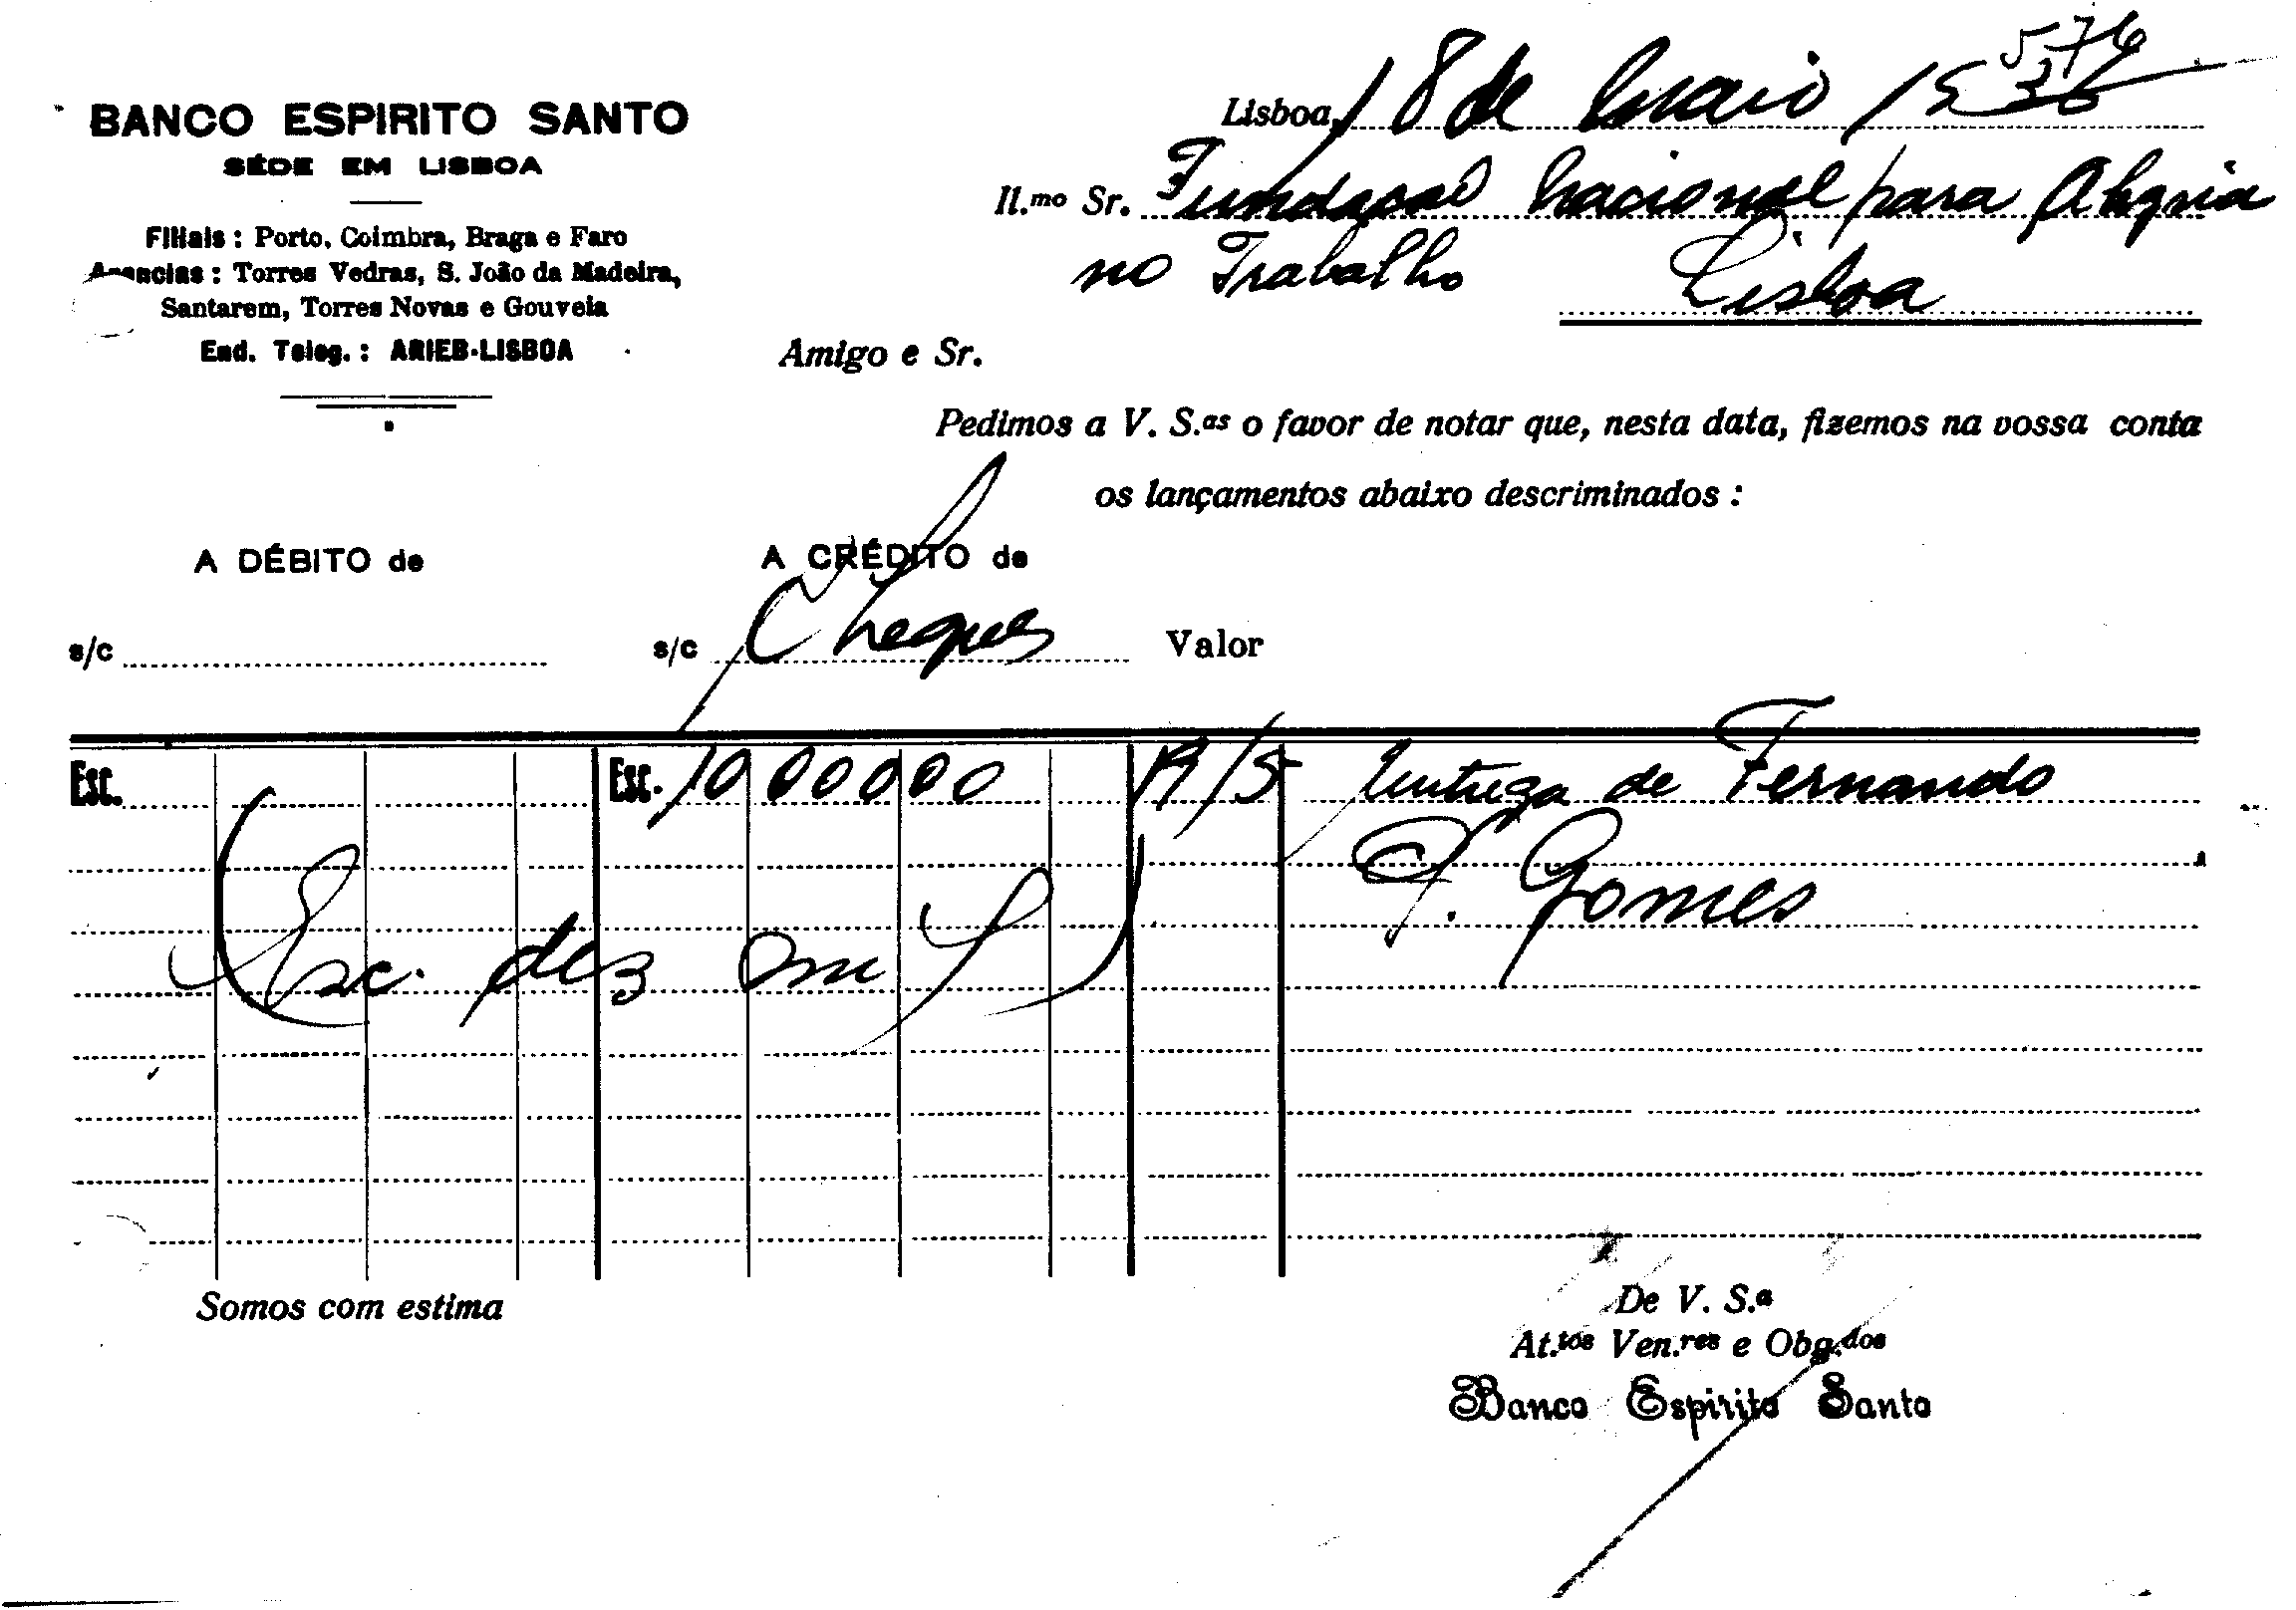 576
BANCO ESPIRITO SANTO
SÉDE EM LISBOA
Filiais : Porto, Coimbra, Braga e Faro
Agencias : Torres Vedras, S. João da Madeira,
Santarem, Torres Novas e Gouveia
End. Teleg. : ARIEB-LISBOA
Lisboa, 18 de Maio 1936
Il.mo Sr. Fundação Nacional para Alegria
no Trabalho Lisboa
Amigo e Sr.
Pedimos a V. S.as o favor de notar que, nesta data, fizemos na vossa conta
os lançamentos abaixo descriminados :
A DÉBITO de A CRÉDITO de
s/c s/c Cheques Valor
Esc. Esc. 10 000 00 19/5 Entrega de Fernando
P. Gomes
Esc. dez mil
Somos com estima
De V. S.a
At.tos Ven.res e Obg.dos
Banco Espirito Santo